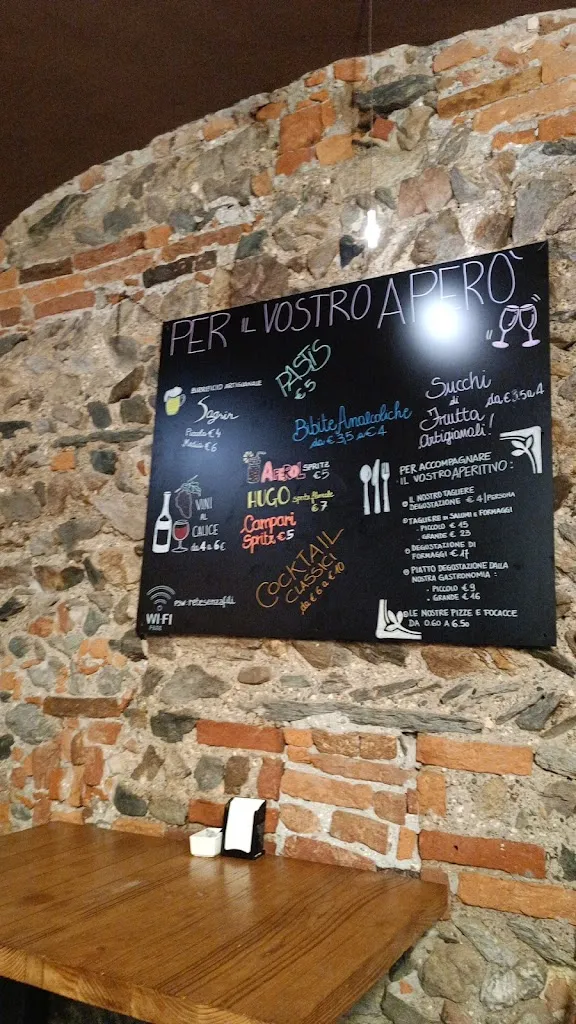 PER IL VOSTRO APERÒ
BIRRIFICIO ARTIGIANALE
Piccola € 4
Media € 6
PASTIS
€ 5
Bibite Analcoliche
da € 3,5 a € 4
Succhi
di
Frutta da € 3.5 a 4
Artigianali!
VINI
AL
CALICE
da 4 a 6€
APEROL SPRITZ
€ 5
HUGO spritz floreale
€ 7
Campari
Spritz € 5
COCKTAIL
CLASSICI
da € 6 a € 10
WI-FI
FREE
PSW: retesenzafili
PER ACCOMPAGNARE
IL VOSTRO APERITIVO:
IL NOSTRO TAGLIERE
DEGUSTAZIONE € 4/PERSONA
TAGLIERE DI SALUMI E FORMAGGI
- PICCOLO € 15
- GRANDE € 23
DEGUSTAZIONE DI
FORMAGGI € 17
PIATTO DEGUSTAZIONE DALLA
NOSTRA GASTRONOMIA:
- PICCOLO € 9
- GRANDE € 16
LE NOSTRE PIZZE E FOCACCE
DA 0.60 A 6.50